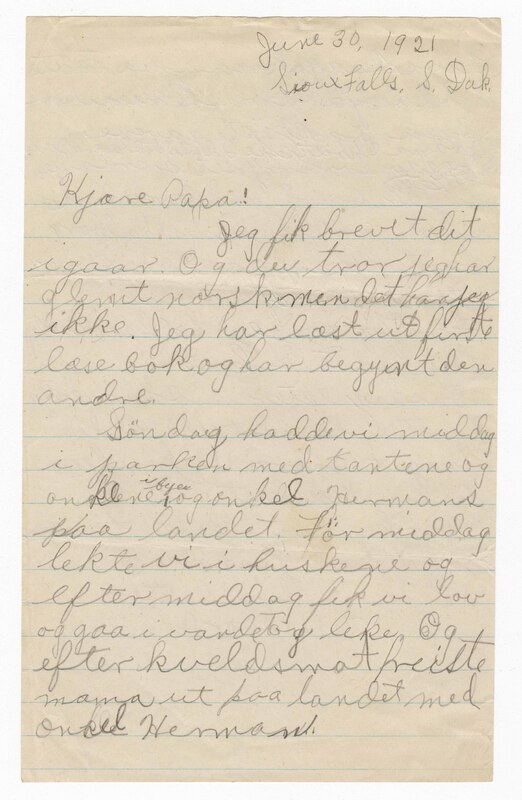 June 30, 1921
Sioux Falls, S. Dak.
Kjære Papa!
Jeg fik brevit dit
igaar. Og du tror jeg har
glemt norsk men det har jeg
ikke. Jeg har læst ut første
læse bok og har begynt den
andre.
Söndag hadde vi middag
i parken med tantene og
onklene i byen og onkel Hermans
paa landet. För middag
lekte vi i huskene og
efter middag fik vi lov
og gaa i vandet og leke. Og
efter kveldsmat reiste
mama ut paa landet med
onkel Herman.